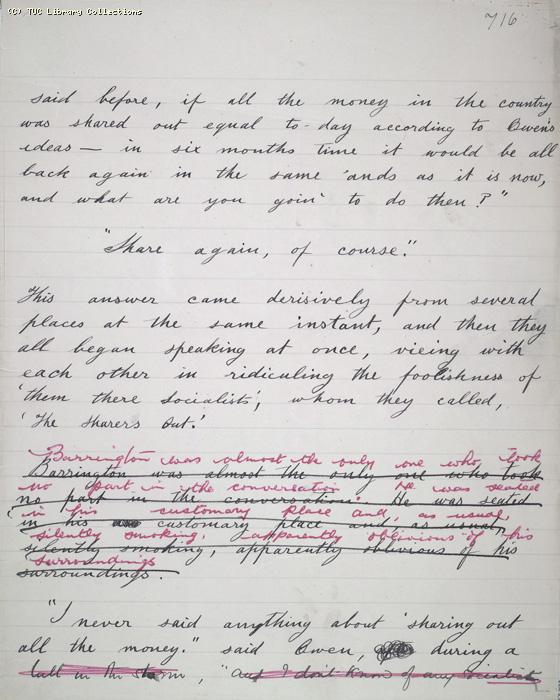 (C) TUC Library Collections
716
said before, if all the money in the country
was shared out equal to-day according to Owen's
ideas — in six months time it would be all
back again in the same 'ands as it is now,
and what are you goin' to do then?"
"Share again, of course."
This answer came derisively from several
places at the same instant, and then they
all began speaking at once, vieing with
each other in ridiculing the foolishness of
'them there Socialists', whom they called,
'The Sharers Out.'
Barrington was almost the only one who took
Barrington was almost the only one who took
no part in the conversation. He was seated
no part in the conversation. He was seated
in his customary place and, as usual,
in his customary place and, as usual,
silently smoking, apparently oblivious of his
silently smoking, apparently oblivious of his
surroundings
surroundings.
"I never said anything about 'sharing out
all the money." said Owen, during a
lull in the storm, "and I don't know of any Socialist